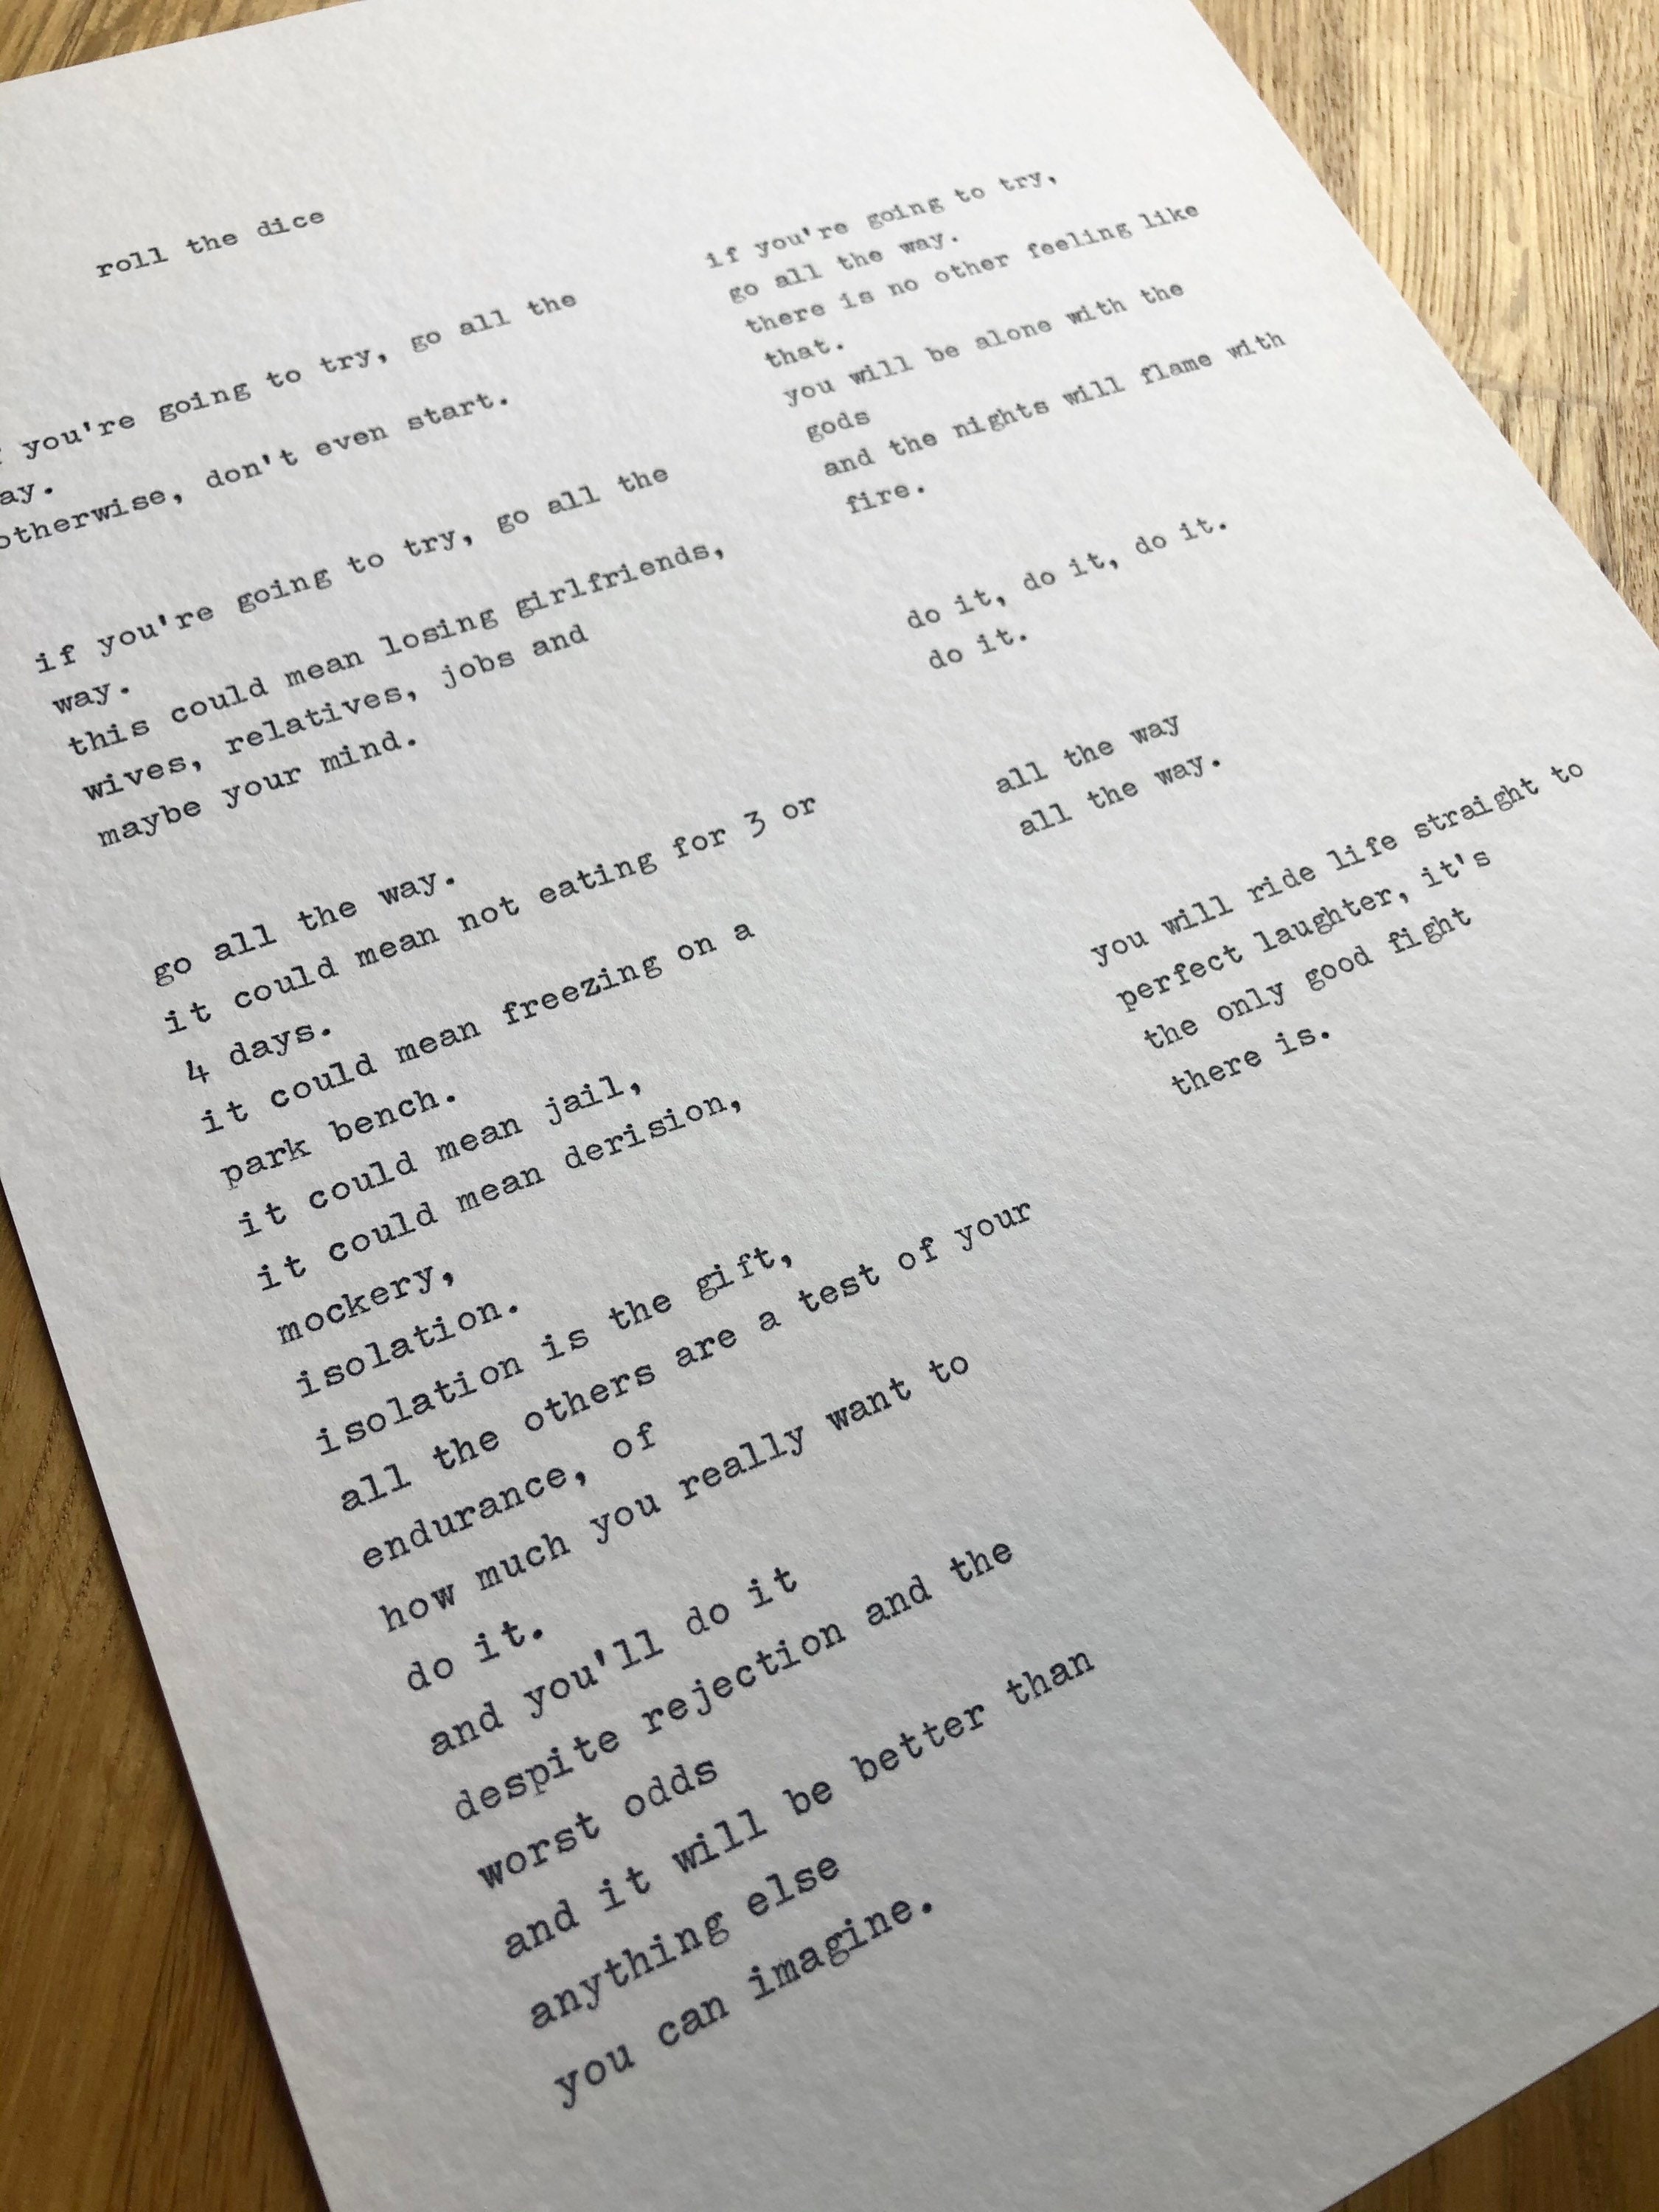 roll the dice
you're going to try, go all the
ay.
otherwise, don't even start.
if you're going to try, go all the
way.
this could mean losing girlfriends,
wives, relatives, jobs and
maybe your mind.
go all the way.
it could mean not eating for 3 or
4 days.
it could mean freezing on a
park bench.
it could mean jail,
it could mean derision,
mockery,
isolation.
isolation is the gift,
all the others are a test of your
endurance, of
how much you really want to
do it.
and you'll do it
despite rejection and the
worst odds
and it will be better than
anything else
you can imagine.
if you're going to try,
go all the way.
there is no other feeling like
that.
you will be alone with the
gods
and the nights will flame with
fire.
do it, do it, do it.
do it.
all the way
all the way.
you will ride life straight to
perfect laughter, it's
the only good fight
there is.